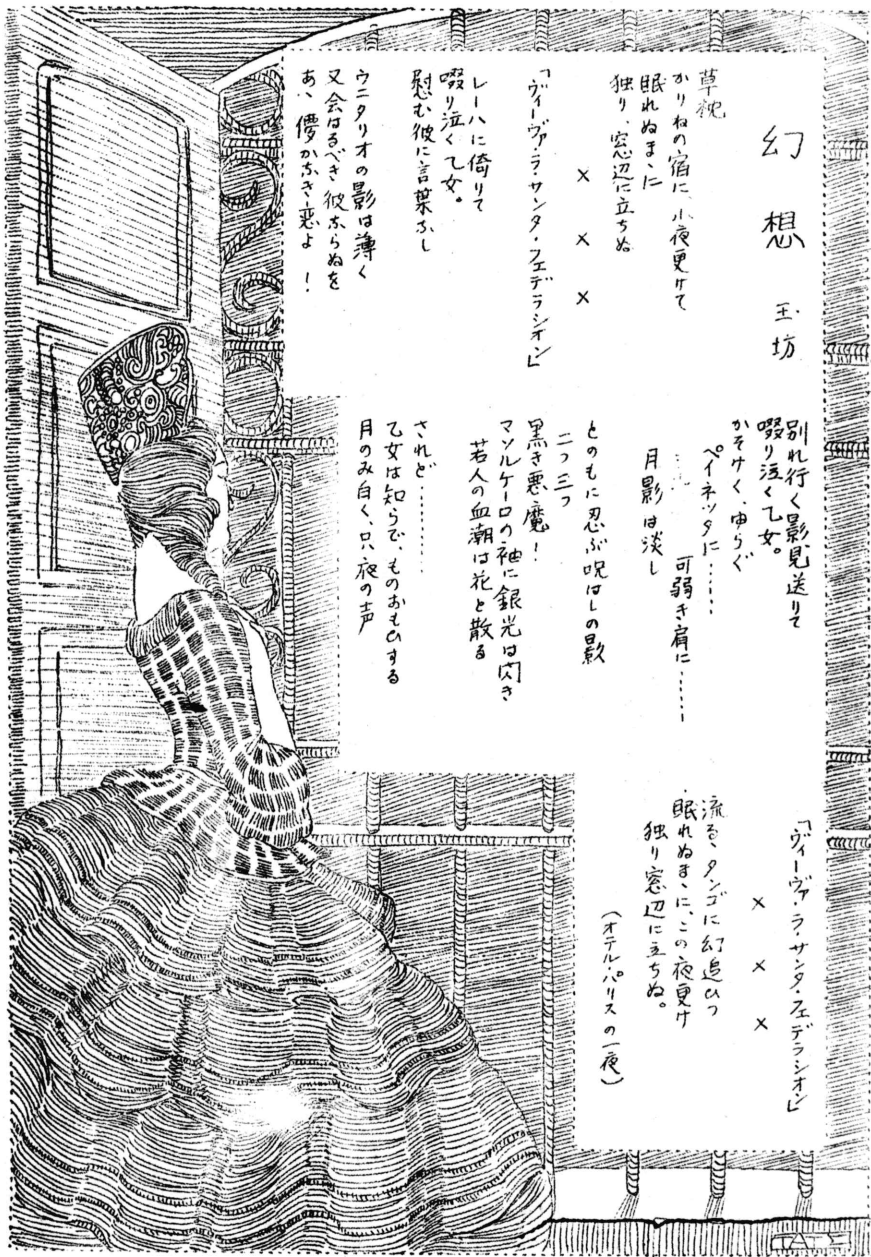 幻想
玉坊
草枕
かりねの宿に、小夜更けて
眠れぬまゝに
独り、窓辺に立ちぬ
× × ×
「ヴィーヴァ・ラ・サンタ・フェデラシオン」
レーハに倚りて
啜り泣く乙女。
慰む彼に言葉なし
ウニタリオの影は薄く
又会はるべき彼ならぬを
あゝ儚かなき恋よ!
別れ行く影見送りて
啜り泣く乙女。
かそけく、ゆらぐ
ペイネッタに……
可弱き肩に……
月影は淡し
とのもに忍ぶ呪はしの影
二つ三つ
黒き悪魔!
マソルケーロの袖に銀光は閃き
若人の血潮は花と散る
されど…………
乙女は知らで、ものおもひする
月のみ白く、只、夜の声
「ヴィーヴァ・ラ・サンタ・フェデラシオン」
× × ×
流るゝタンゴに幻追ひつ
眠れぬまゝに、この夜更け
独り窓辺に立ちぬ。
(オテル・パリスの一夜)